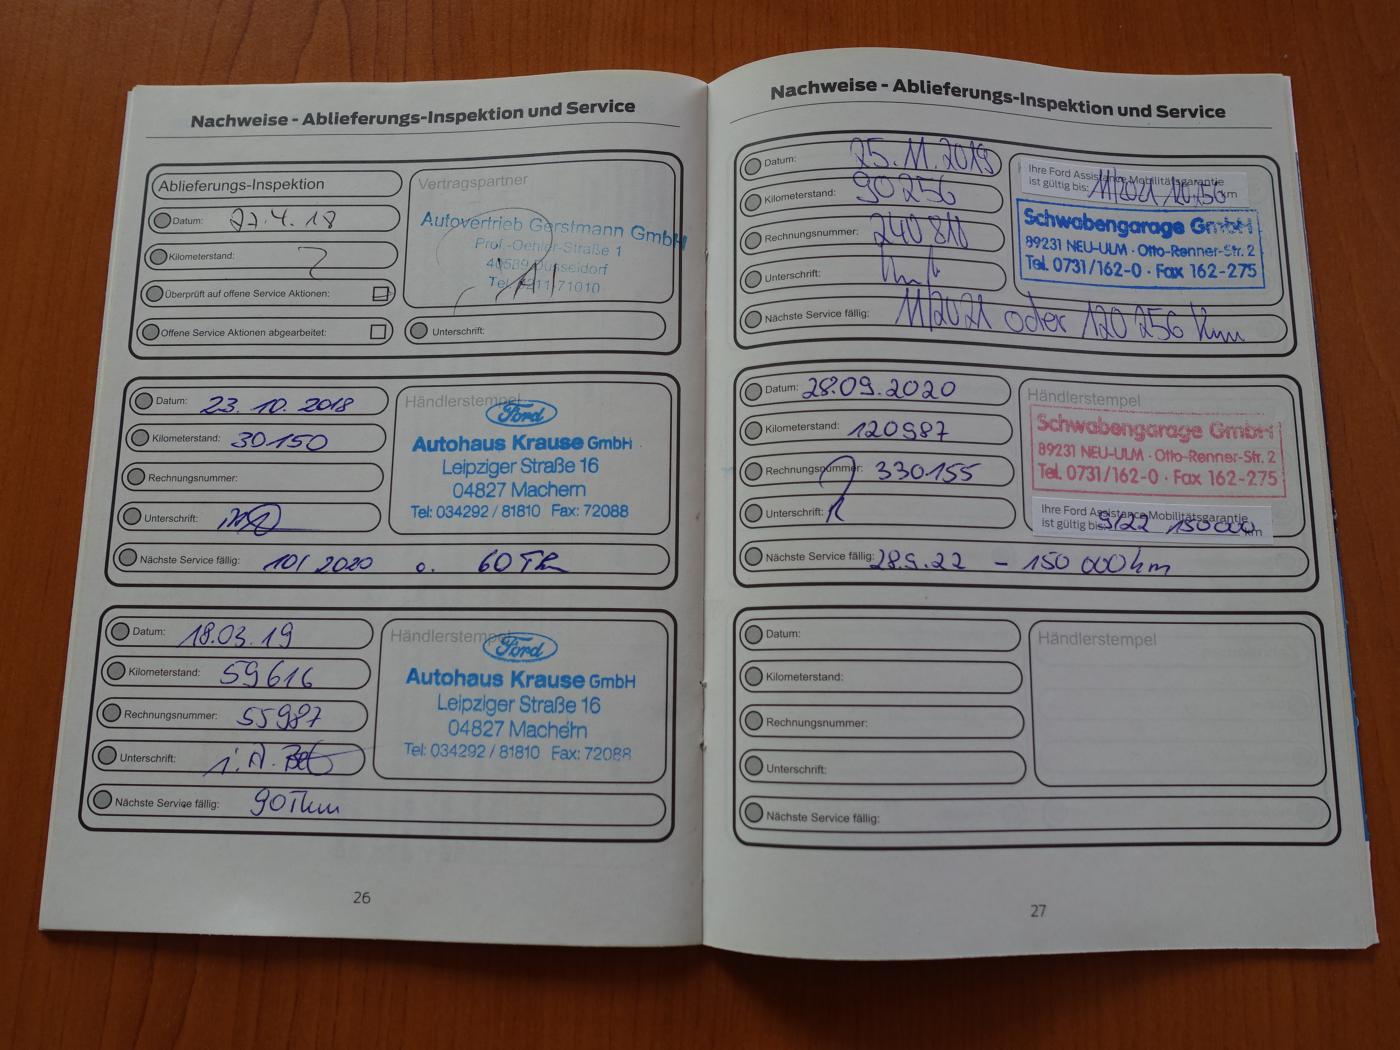 Nachweise - Ablieferungs-Inspektion und Service
Ablieferungs-Inspektion
Datum: 27.4.18
Kilometerstand: 7
Überprüft auf offene Service Aktionen:
Offene Service Aktionen abgearbeitet:
Vertragspartner
Autovertrieb Gerstmann GmbH
Prof.-Oehler-Straße 1
40589 Düsseldorf
Tel. 0211-71010
Unterschrift:
Datum: 23. 10. 2018
Kilometerstand: 30150
Rechnungsnummer:
Unterschrift:
Händlerstempel
Ford
Autohaus Krause GmbH
Leipziger Straße 16
04827 Machern
Tel: 034292 / 81810 Fax: 72088
Nächste Service fällig: 10/2020 o. 60 T
Datum: 18.03.19
Kilometerstand: 59616
Rechnungsnummer: 55987
Unterschrift: i.A.
Händlerstempel
Ford
Autohaus Krause GmbH
Leipziger Straße 16
04827 Machern
Tel: 034292 / 81810 Fax: 72088
Nächste Service fällig: 90Tkm
26
Nachweise - Ablieferungs-Inspektion und Service
Datum: 25.11.2019
Kilometerstand: 90256
Rechnungsnummer: 240810
Unterschrift:
Ihre Ford Assistance Mobilitätsgarantie
ist gültig bis: 11/2021 120.256 km
Schwabengarage GmbH
89231 NEU-ULM · Otto-Renner-Str. 2
Tel. 0731/162-0 · Fax 162-275
Nächste Service fällig: 11/2021 oder 120 256 km
Datum: 28.09.2020
Kilometerstand: 120987
Rechnungsnummer: 330155
Unterschrift:
Händlerstempel
Schwabengarage GmbH
89231 NEU-ULM · Otto-Renner-Str. 2
Tel. 0731/162-0 · Fax 162-275
Ihre Ford Assistance Mobilitätsgarantie
ist gültig bis: 9/22 150000 km
Nächste Service fällig: 28.9.22 - 150 000 km
Datum:
Kilometerstand:
Rechnungsnummer:
Unterschrift:
Händlerstempel
Nächste Service fällig:
27